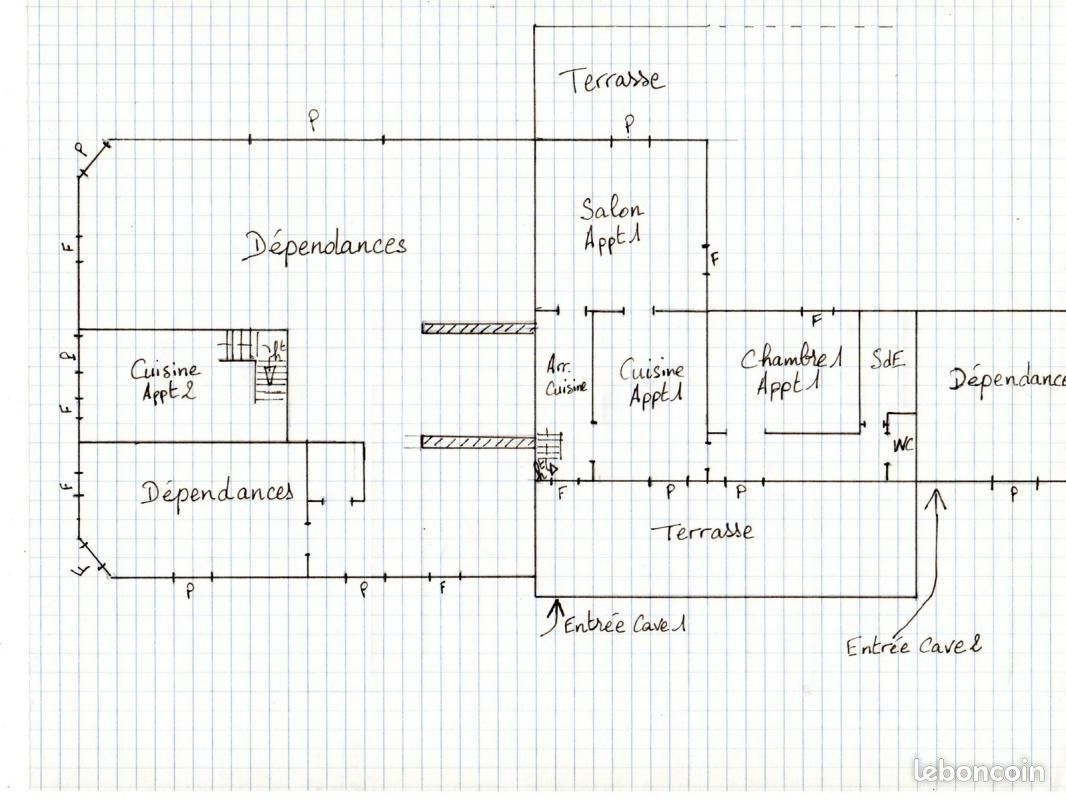 Terrasse
P
P
P
Salon
Appt1
Dépendances
F
F
F
P
Cuisine
Appt2
ht
Arr.
Cuisine
Cuisine
Appt1
Chambre1
Appt1
SdE
Dépendance
F
WC
F
Dépendances
ht
F
P
P
P
Terrasse
F
P
P
F
Entrée Cave1
Entrée Cave2
leboncoin